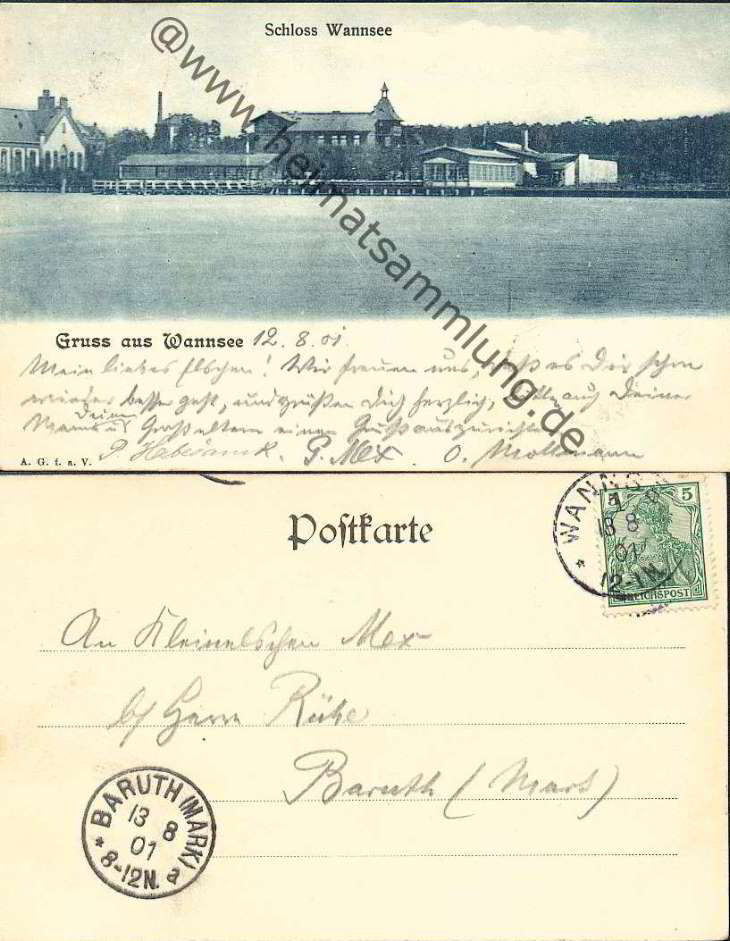 Schloss Wannsee
@www.heimatsammlung.de
Gruss aus Wannsee 12.8.01.
Mein liebes Elschen! Wir freuen uns, daß es Dir schon
wieder besser geht, und grüßen Dich herzlich, bitte auch Deiner
Mama u. Deinen Großeltern einen Gruß auszurichten
G. Mex. O. Mollmann
A. G. f. a. V.
Postkarte
WANNSEE
13 8
01
12-1N.
5 5
REICHSPOST
An Kleinelschen Mex
b/ Herrn Rühe
Baruth (Mark)
* BARUTH (MARK) a
13 8
01
8-12N.